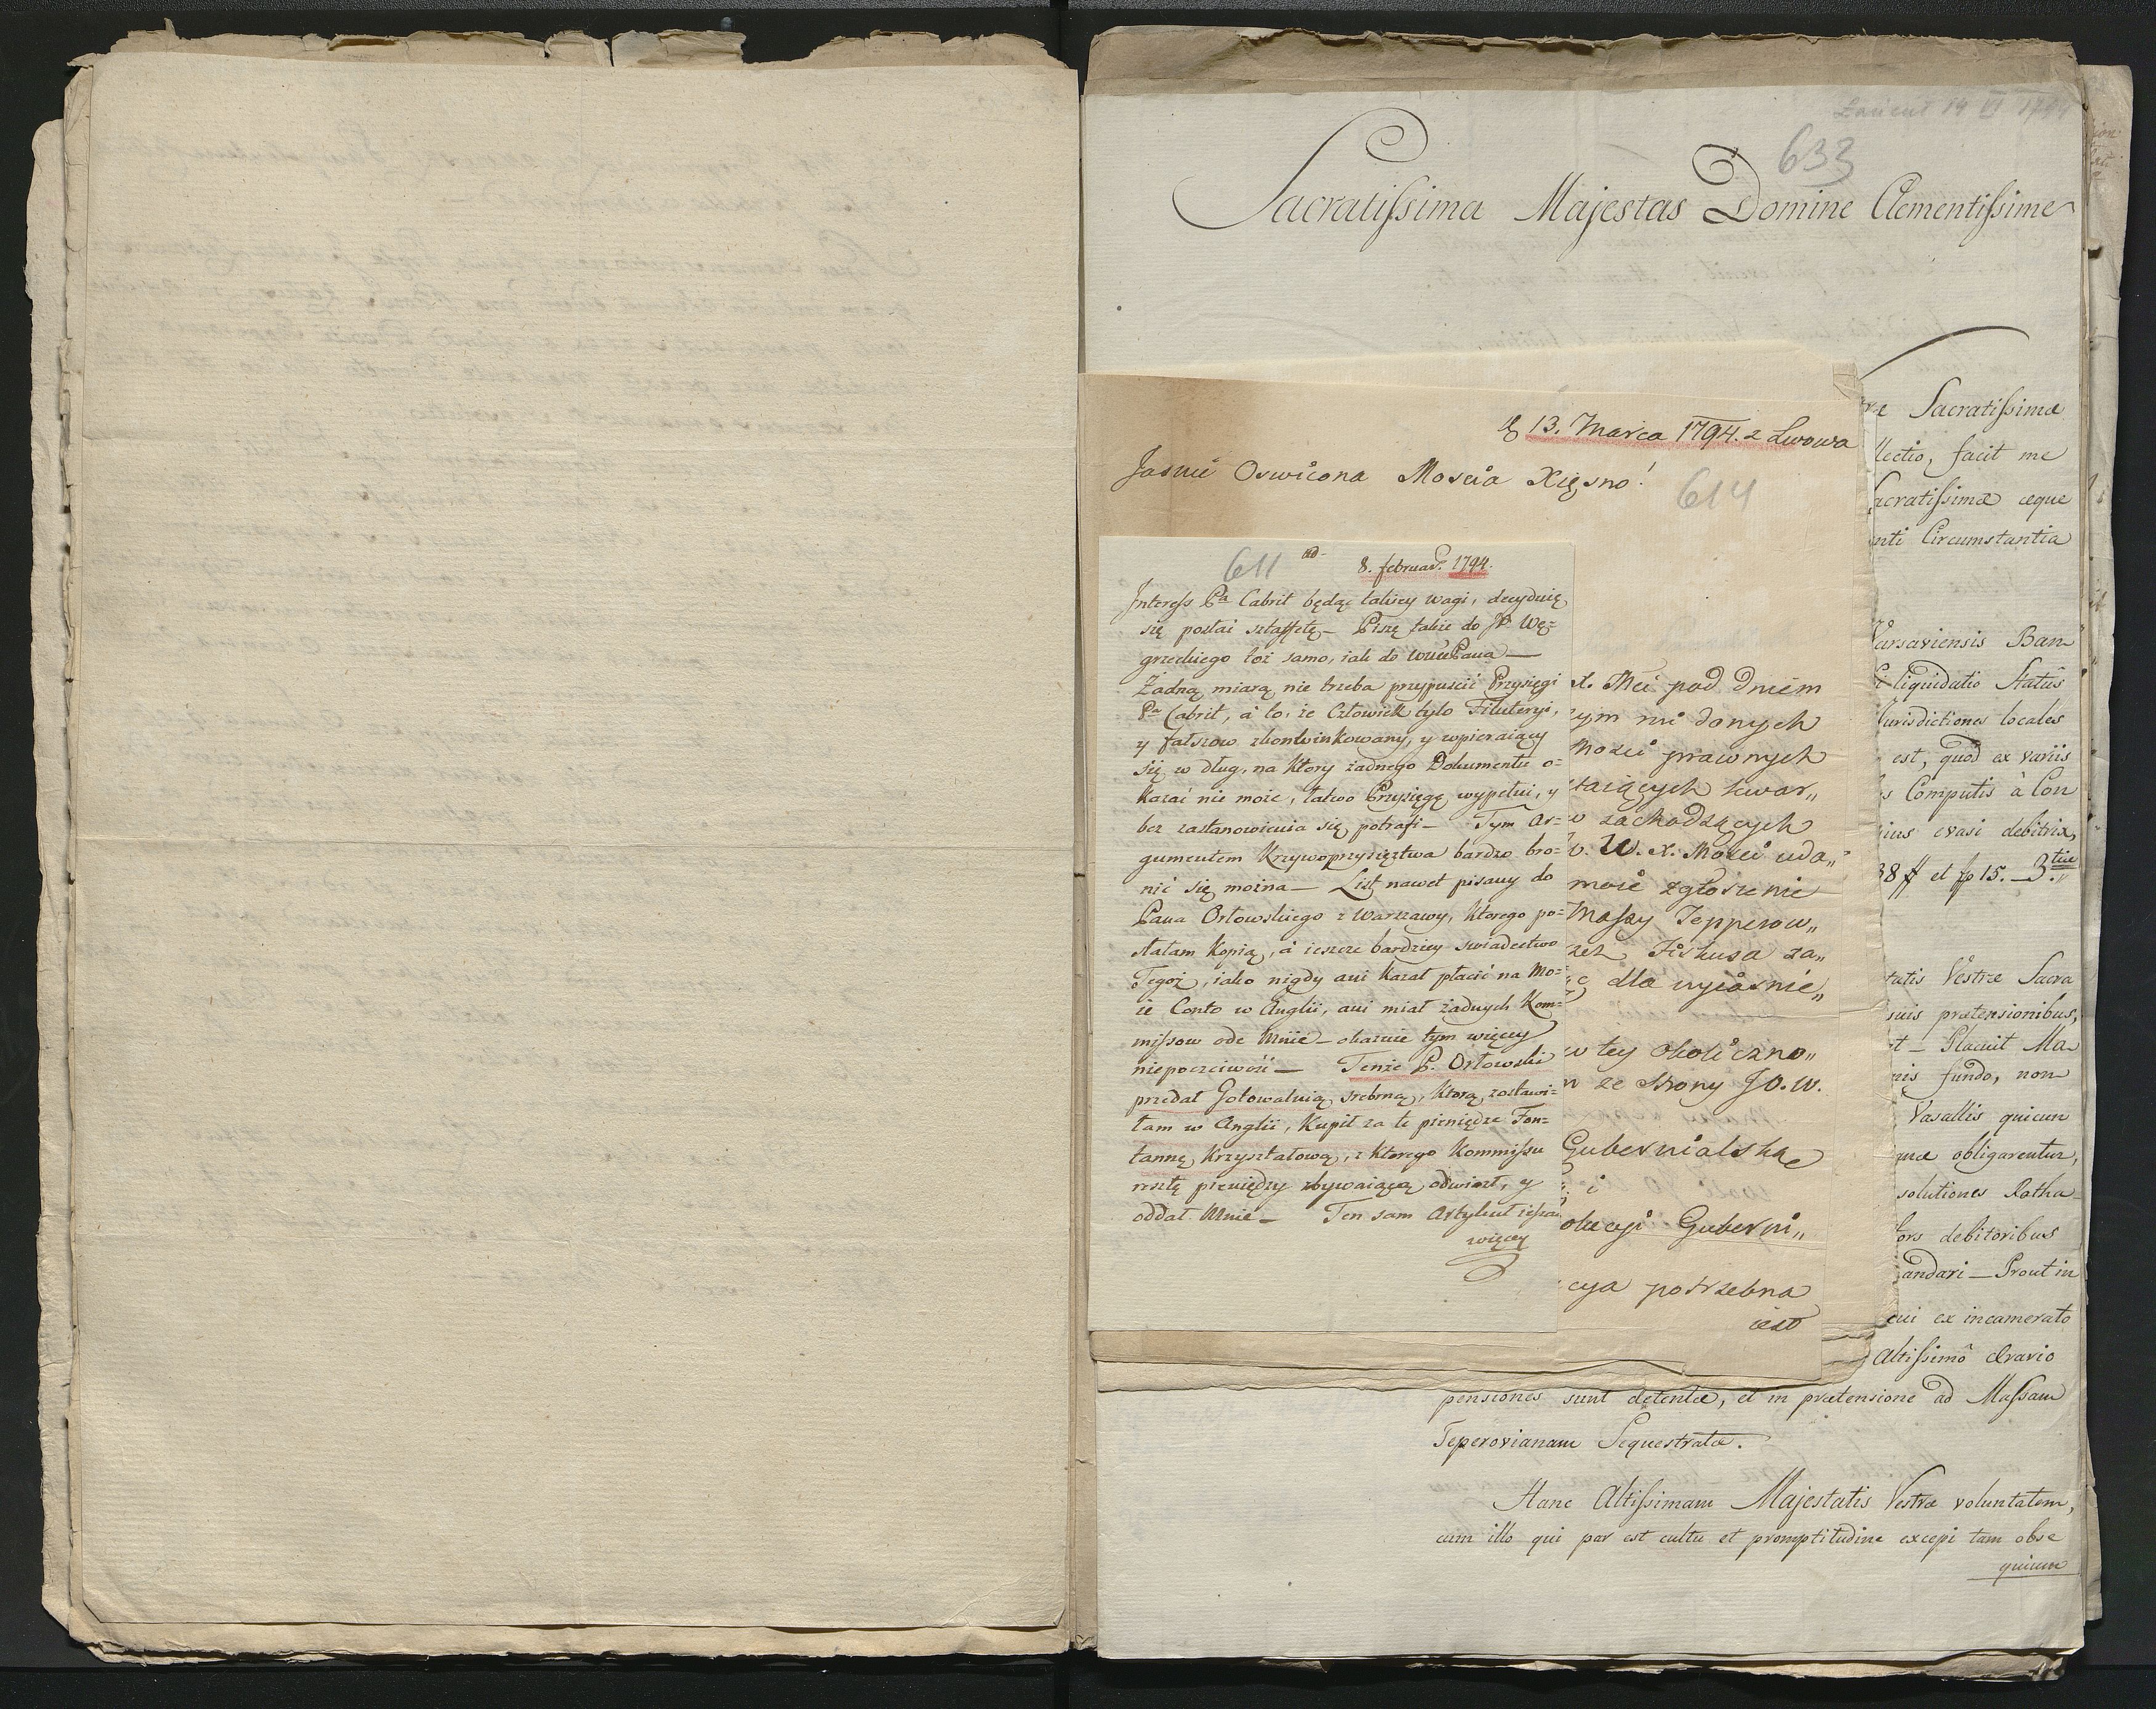 Łańcut 14 VI 1794
633
Sacratissima Majestas Domine Clementissime
Sacratissimæ
llectio, facit me
acratissimæ æque
nti Circumstantia
Varsaviensis Ban
liquidatio Statûs
Jurisdictiones locales
est, quod ex variis
s Computis à Con
ius evasi debitrix,
38 # et fp 15. _ 3.tiæ
tatis Vestræ Sacra
suis prætensionibus,
t _ Placuit Ma
nis fundo, non
Vasallis quicun
quæ obligarentur,
solutiones Ratha_
tors debitoribus
andari _ Prout in
cui ex incamerato
Altissimô Ærario
pensiones sunt detentæ, et in prætensione ad Massam
Teperovianam Sequestratæ.
Hanc Altissimam Majestatis Vestræ voluntatem,
cum illo qui par est cultu et promptitudine excepi tam obse
quium
13. Marca 1794. z Lwowa
Jasnie Oswicona Moscia Xięzno!
614
x. Mci pod dniem
ym mi danych
Mozci prawnych
taiących kwar„
w zachodzących
W. X. Mozci uda„
moie zgłoszenie
Massy Tepperow„
zez Fiskusa za„
ę dla wyiasnie„
w tey okoliczno„
ze Strony JO. W.
Gubernialskae
i
olucyi Guberni„
cya potrzebna
iest
611
ad 8. februar. 1794.
Interess Pa Cabrit będąc takiey wagi, decyduię
się posłai sztaffetę _ Piszę także do JP Wę=
grzeckiego toż samo, iak do WMPana _
Żadną miarą nie trzeba przypuscić Przysięgi
Pa Cabrit, á to, że Człowiek tylo Filuteryi,
y fałszow zkonwinkowany, y wpieraiący
się w dług, na ktory żadnego Dokumentu o=
kazać nie może, łatwo Przysięgę wypełni, y
bez zastanowienia się potrafi _ Tym Ar=
gumentem Krzywoprzysięztwa bardzo bro=
nić się można _ List nawet pisany do
Pana Orłowskiego z Warszawy, ktorego po=
słałam Kopią, á ieszcze bardziey swiadectwo
Tegoż, iako nigdy ani kazał płacić na Mo=
ie Conto w Anglii, ani miał żadnych Kom=
missow ode Mnie _ okazuie tym więcey
niepoczciwość _ Tenże P. Orłowski
przedał Gotowalnią srebrną, ktorą zostawi=
łam w Anglii, Kupił za te pieniądze Fon=
tannę Krzyształową, z ktorego Kommissu
resztę pieniędzy zbywaiącą odwiozł, y
oddał Mnie _ Ten sam Artykuł
więcey